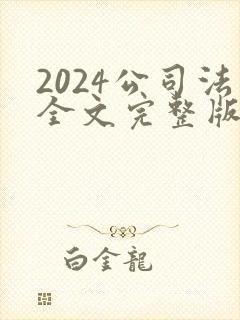 2024公司法
全文完整版
白金龍